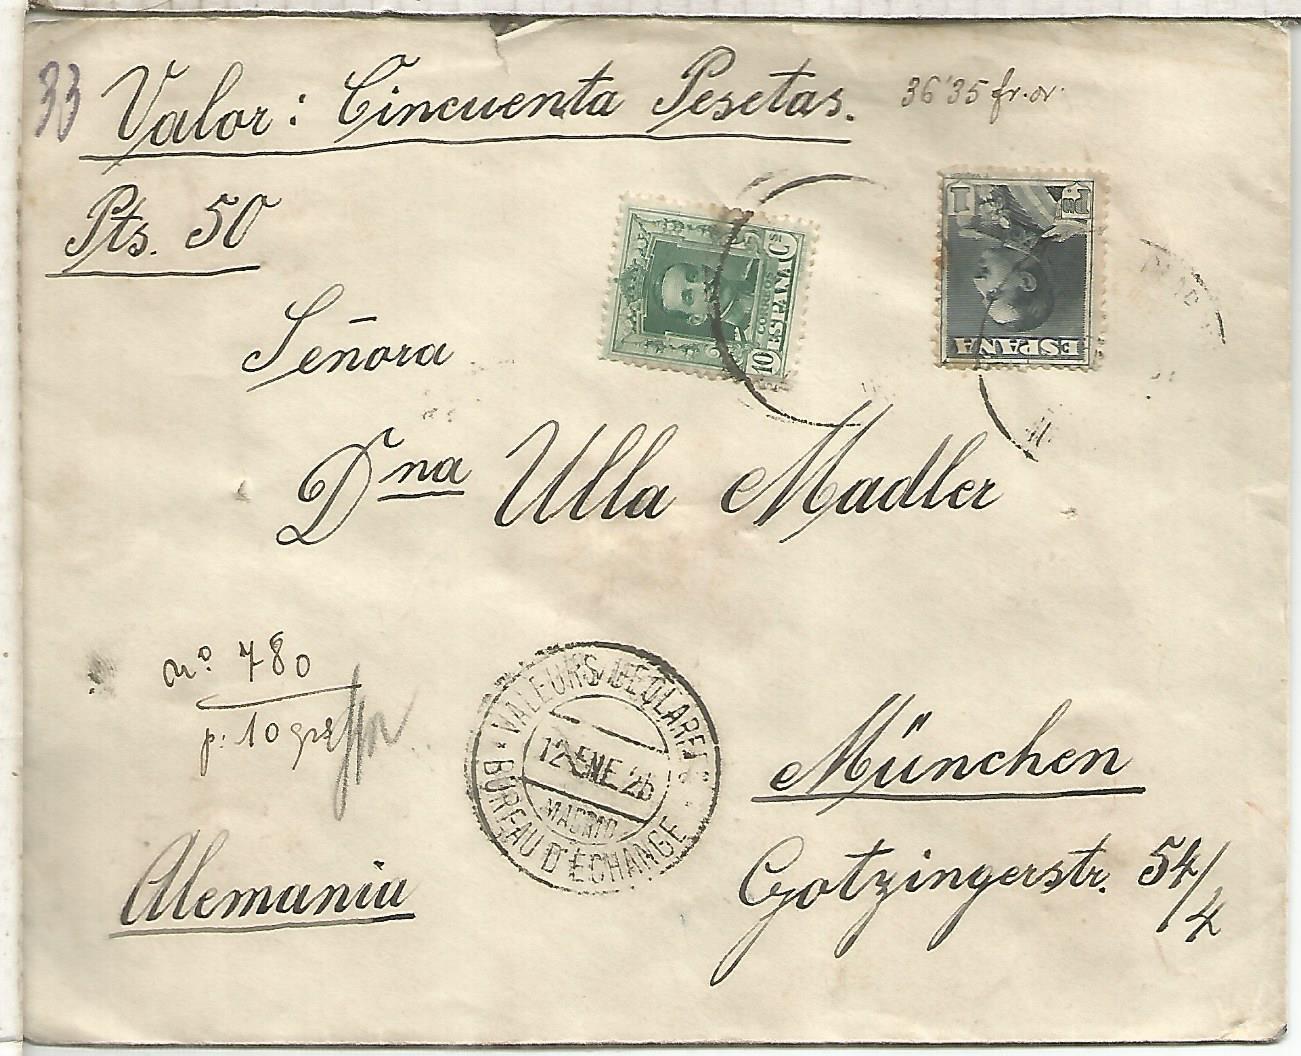 33 Valor: Cincuenta Pesetas. 36'35 fr. or.
Pts. 50
10 Cs
CORREOS
ESPAÑA
1 Pta
ESPAÑA
Señora
Dna Ulla Madler
nº 780
p. 10 grs
VALEURS DECLAREES
12 ENE 26
MADRID
BUREAU D'ECHANGE
München
Alemania
Gotzingerstr. 54/4